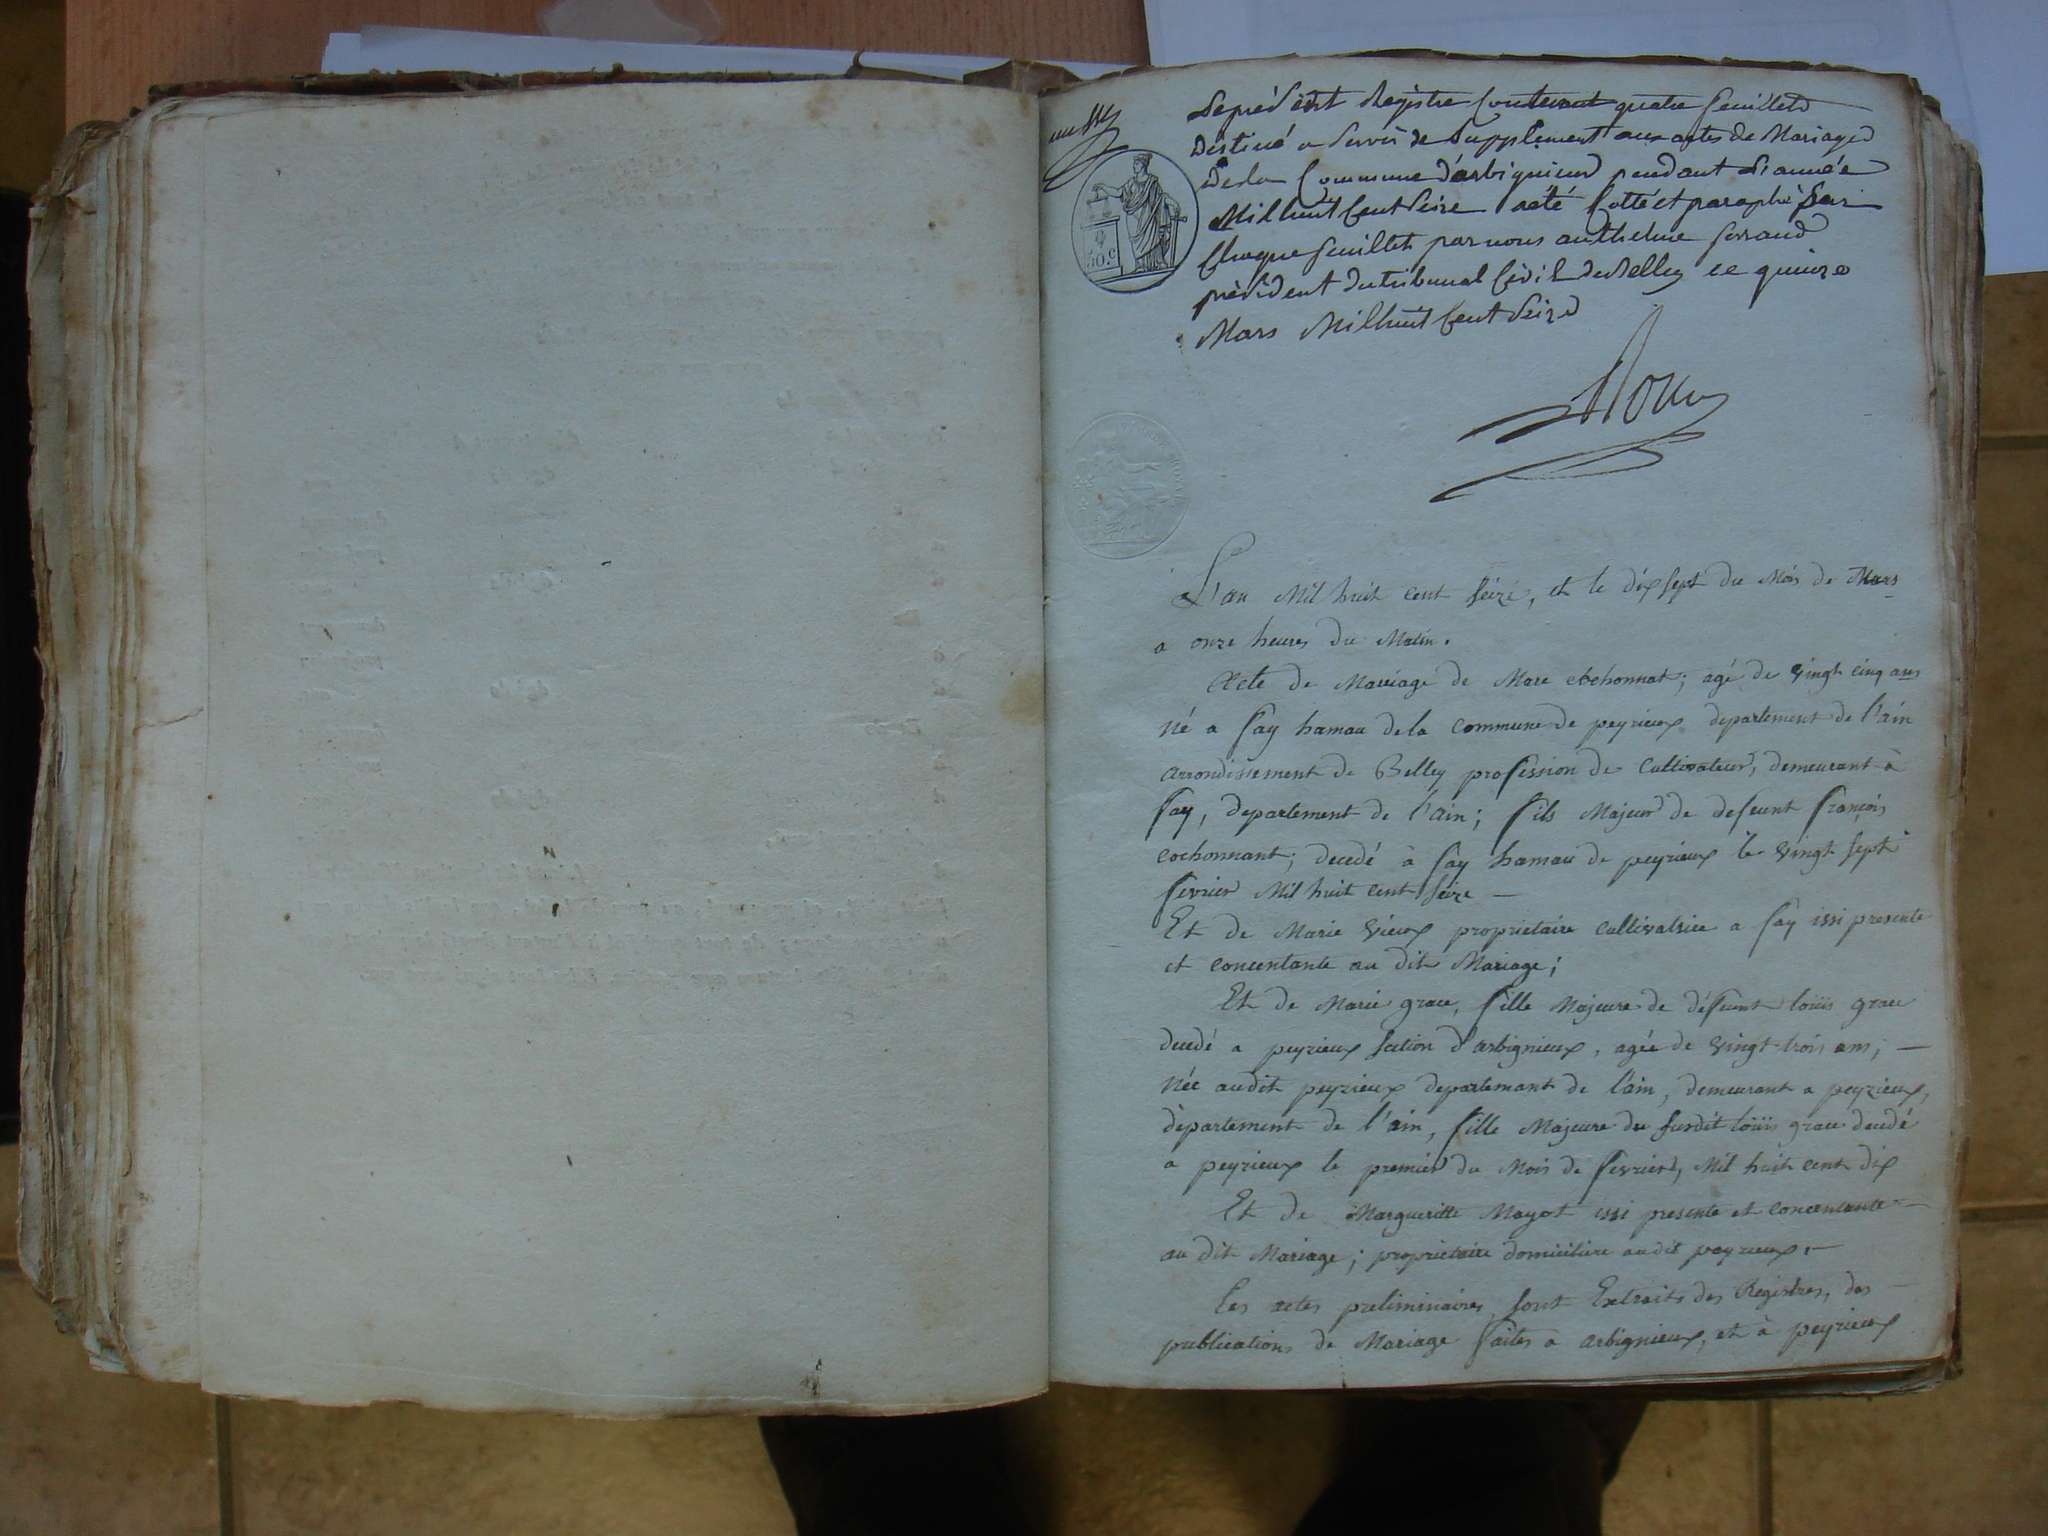 Le présent Registre Contenant quatre feuillets
Destiné a Servir de Supplement aux actes de Mariages
De la Commune d'arbignieux pendant L'année
Mil huit Cent Seize a été Cotté et paraphé Sur
Chaque feuillet par nous anthelme ferrand
président du tribunal Civil de Belley ce quinze
Mars Mil huit Cent Seize
50.c
L'an Mil huit cent seize, et le dix sept du Mois de Mars
a onze heures du Matin.
Acte de Mariage de Marc Cochonnat; agé de vingt cinq ans
né a fay hamau de la commune de peyrieux departement de l'ain
arrondissement de Belley profession de Cultivateur, demeurant à
fay, departement de l'ain; fils Majeur de defeunt françois
cochonnant; decedé à fay hamau de peyrieux le vingt sept
fevrier Mil huit cent seize —
Et de Marie vieux proprietaire cultivatrice a fay issi presente
et concentante au dit Mariage;
Et de Marie grace, fille Majeure de défeunt loüis grace
decedé a peyrieux section d'arbignieux, agée de vingt trois ans; —
née audit peyrieux departemant de l'ain, demeurant a peyrieux,
département de l'ain, fille Majeure du susdit loüis grace decedé
a peyrieux le premier du Mois de fevrier, Mil huit cent dix
Et de Margueritte Mayot issi presente et concentante —
au dit Mariage; proprietaire domiciliere audit peyrieux. —
Les actes preliminaires sont Extraits des Registres, des —
publications de Mariage faites a arbignieux, et à peyrieux